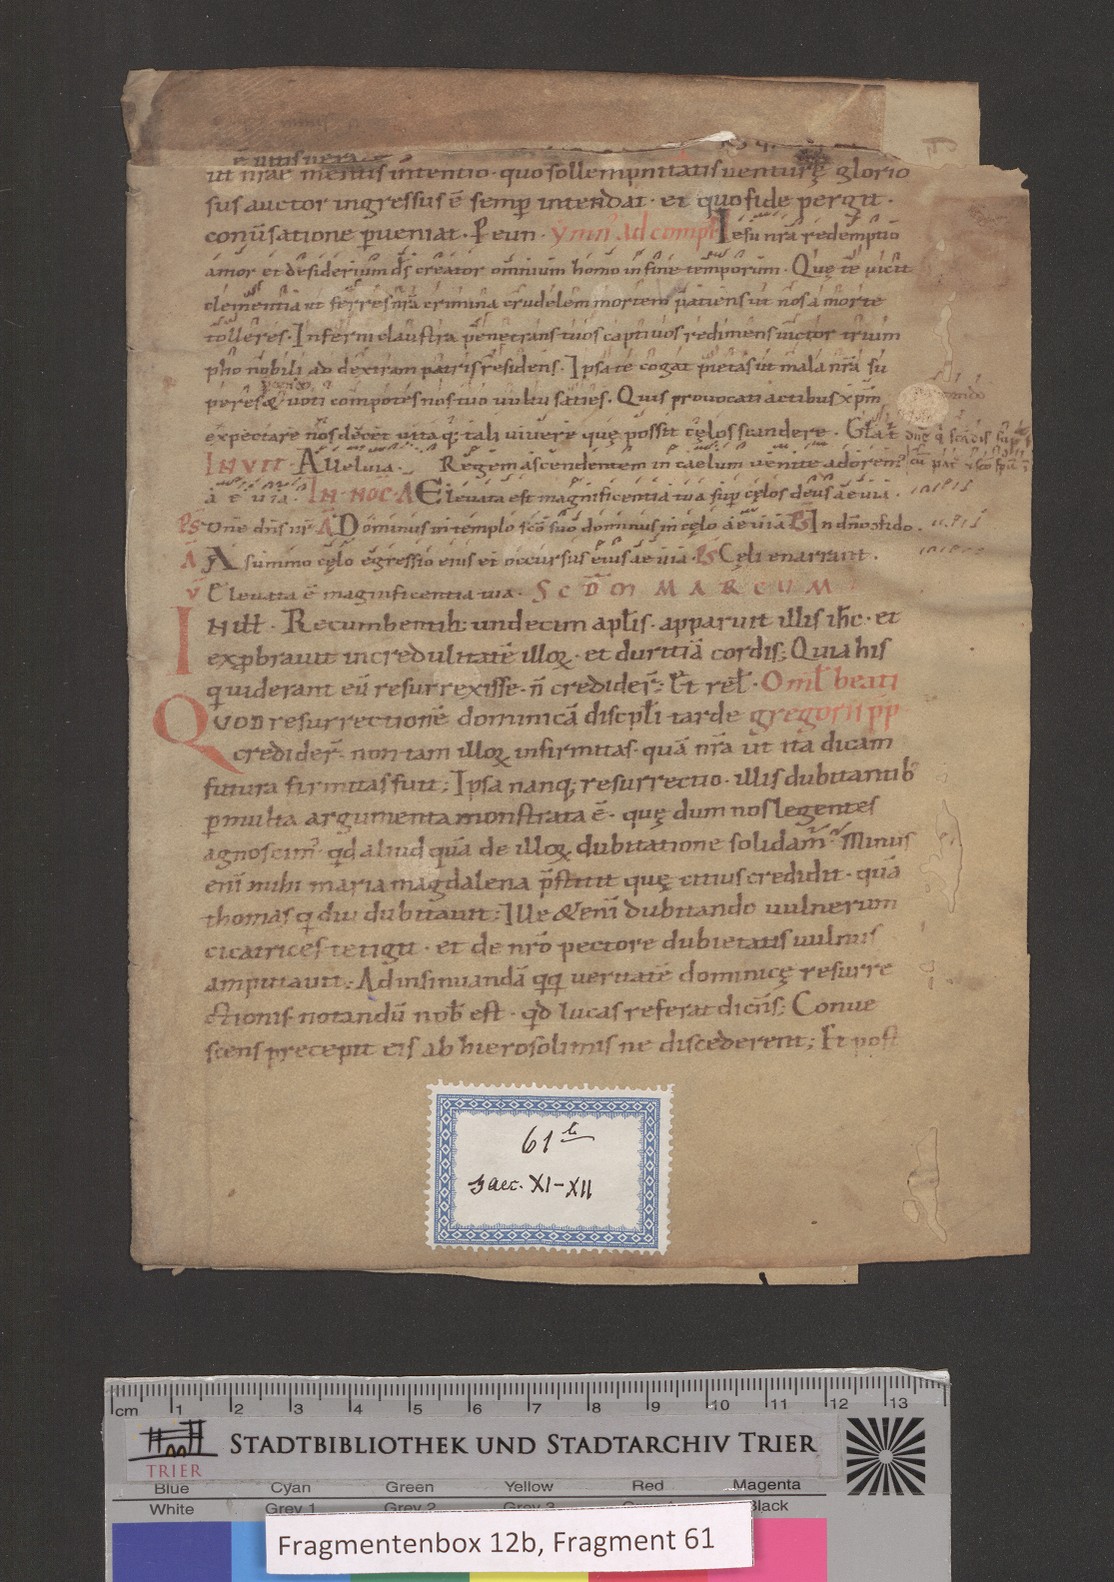 ut nrae mentis intentio · quo sollempnitatis venturę glorio
sus auctor ingressus ē semp intendat · et quo fide pergit ·
conūsatione pveniat · P eun · ymn ad compl Iesu nra redemptio
amor et desiderium ds creator omnium homo in fine temporum · Quę te vicit
clementia ut ferres nra crimina crudelem mortem patiens ut nos a morte
tolleres · Inferni claustra penetrans tuos captivos redimens victor trium
pho nobili ad dextram patris residens · Ipsa te cogat pietas ut mala nra su
peres & voti compotes nos tuo vultu saties · Quis provocati actibus xpm
expectare nos decet vita q; tali vivere quę possit cęlos scandere · Gla t dne q scandis sup
IN VIT · Allelvia · Regem ascendentem in caelum venite adorem cū pat & sco spu
a e via · IN · NOC · A Elevata est magnificentia tua sup cęlos deus ae via ·
Ps Dne dns nr A Dominus in templo sco suo dominus in cęlo ae via Ps In dno cfido ·
A A summo cęlo egressio eius et occursus eius ae via Ps Cęli enarrant ·
V Elevata ē magnificentia tua · SCDM MARCUM
IN illt · Recumbentib; undecim aplis · apparuit illis ihc · et
expbravit incredulitatē illoꝝ · et duritiā cordis; Quia his
qui viderant eū resurrexisse · n crediderͬ; Et rel · Oml beati
Quod resurrectionē dominicā discpli tarde gregorii pp
crediderͬ · non tam illoꝝ infirmitas · quā nra ut ita dicam
futura firmitas fuit; Ipsa nanq; resurrectio · illis dubitantib
pmulta argumenta monstrata ē · quę dum nos legentes
agnoscimͬ · qd aliud quā de illoꝝ dubitatione solidamͬ? Minus
eni mihi maria magdalena pstitit quę citius credidit · quā
thomas q diu dubitavit; Ille & eni dubitando vulnerum
cicatrices tetigit · et de nro pectore dubietatis vulnus
amputavit; Ad insinuandā qq veritatē dominicę resurre
ctionis notandū nob est · qd lucas referat dicns; Conve
scens precepit eis ab hierosolimis ne discederent; Et post
61 b
Saec. XI-XII
cm 1 2 3 4 5 6 7 8 9 10 11 12 13
TRIER
STADTBIBLIOTHEK UND STADTARCHIV TRIER
Blue Cyan Green Yellow Red Magenta
White Grey 1 Grey 2 Grey 3 Black
Fragmentenbox 12b, Fragment 61